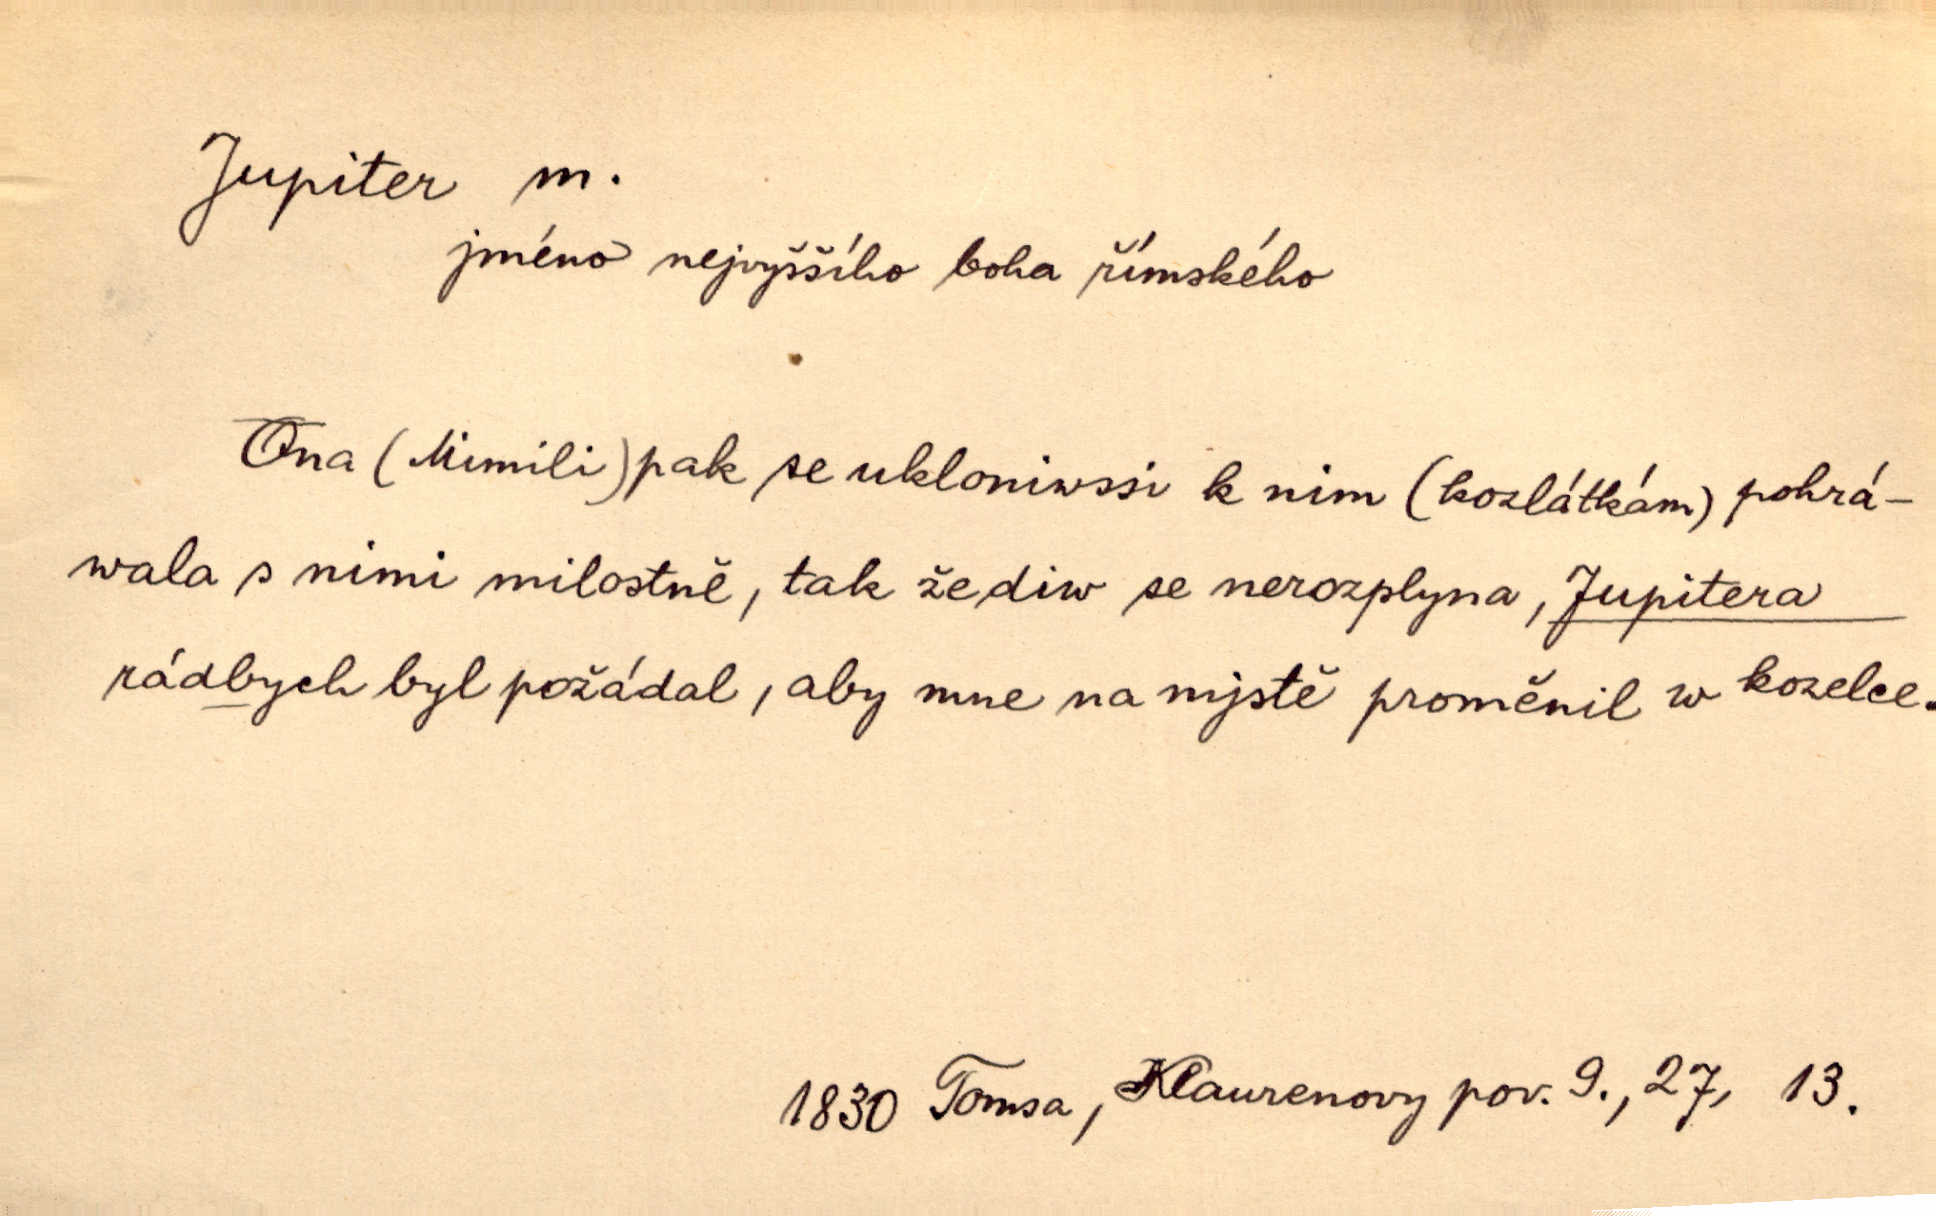 Jupiter m.
jméno nejvyššího boha římského
Ona (Mimili) pak se ukloniwssi k nim (kozlátkám) pohrá-
wala s nimi milostně, tak že diw se nerozplyna, Jupitera
rádbych byl požádal, aby mne na mjstě proměnil w kozelce.
1830 Tomsa, Klaurenovy pov. 9., 27, 13.